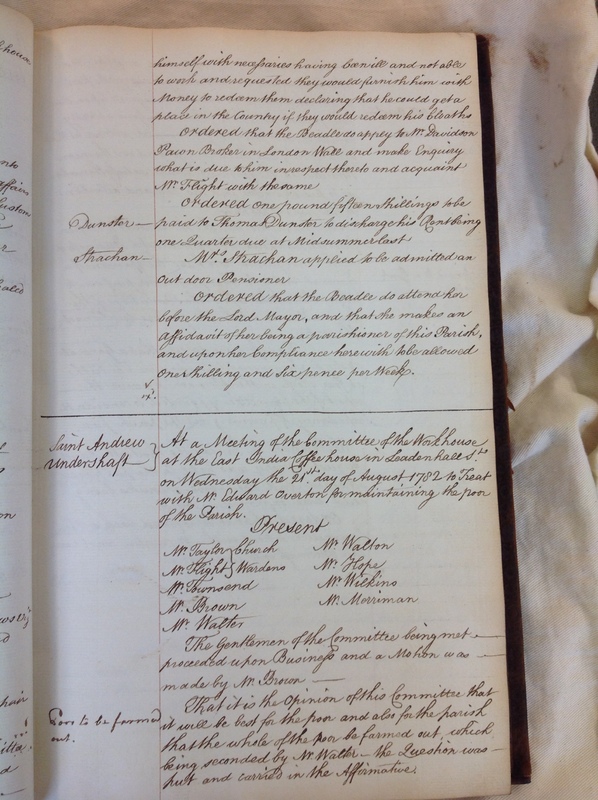 himself with necessaries having been ill and not able
to work and requested they would furnish him with
Money to redeem them declaring that he could get a
place in the Country if they would redeem his Cloaths
Ordered that the Beadle do apply to Mr. Davidson
Pawn Broker in London Wall and make Enquiry
what is due to him in respect thereto and acquaint
Mr. Flight with the same
Ordered one pound fifteen shillings to be
Dunster paid to Thomas Dunster to discharge his Rent being
one Quarter due at Midsummer last
Strachan Mrs. Strachan applied to be admitted an
out door Pensioner
Ordered that the Beadle do attend her
before the Lord Mayor, and that she makes an
Affidavit of her being a parishioner of this Parish,
and upon her Compliance herewith to be allowed
One shilling and Six pence per Week.
Saint Andrew At a Meeting of the Committee of the Workhouse
Undershaft at the East India Coffee house in Leadenhall St.
on Wednesday the 21st. day of August 1782 to Treat
with Mr. Edward Overton for maintaining the poor
of the Parish.
Present
Mr. Taylor } Church Mr. Walton
Mr. Flight } Wardens Mr. Hope
Mr. Townsend Mr. Wilkins
Mr. Brown Mr. Merriman
Mr. Walter
The Gentlemen of the Committee being met
proceeded upon Business and a Motion was
made by Mr. Brown
That it is the Opinion of this Committee that
Poor to be farmed it will be best for the poor and also for the parish
out. that the whole of the poor be farmed out, which
being seconded by Mr. Walter – the Question was
put and carried in the Affirmative.